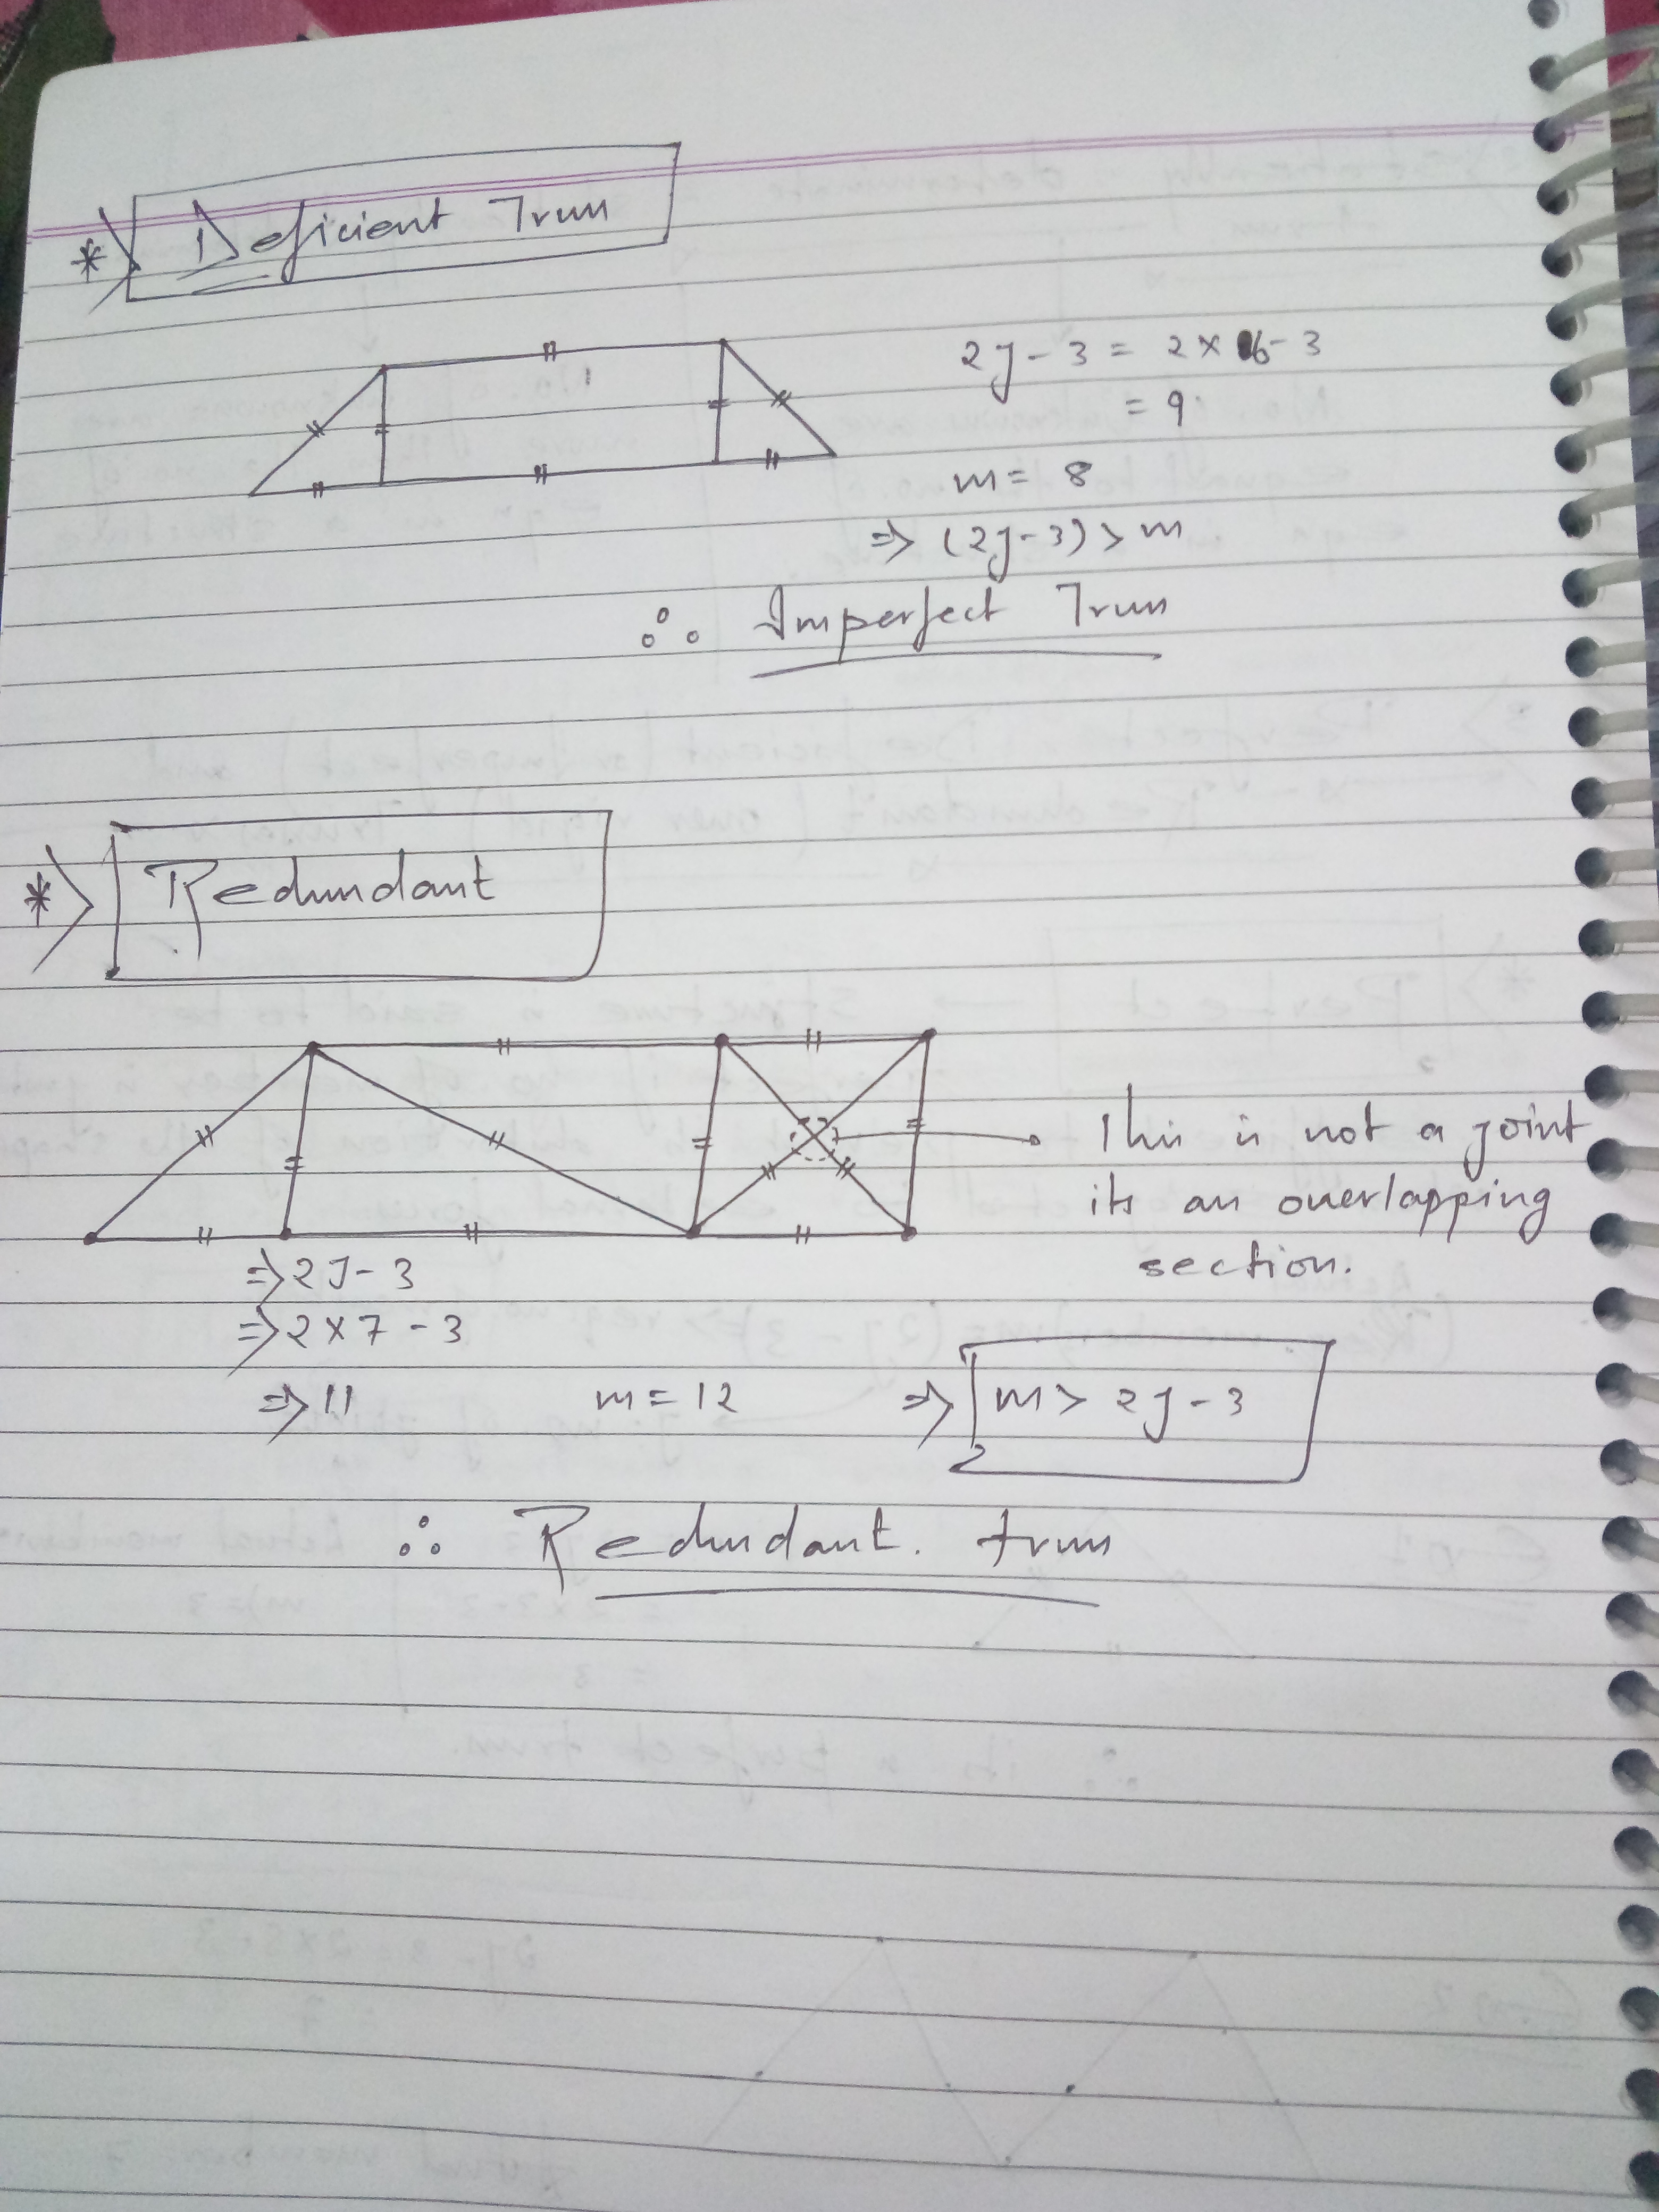 *) Deficient Truss
2j - 3 = 2 × 6 - 3
= 9
m = 8
⇒ (2j - 3) > m
∴ Imperfect Truss
*) Redundant
This is not a joint
its an overlapping
section.
⇒ 2J - 3
⇒ 2 × 7 - 3
⇒ 11 m = 12 ⇒ m > 2j - 3
∴ Redundant. truss